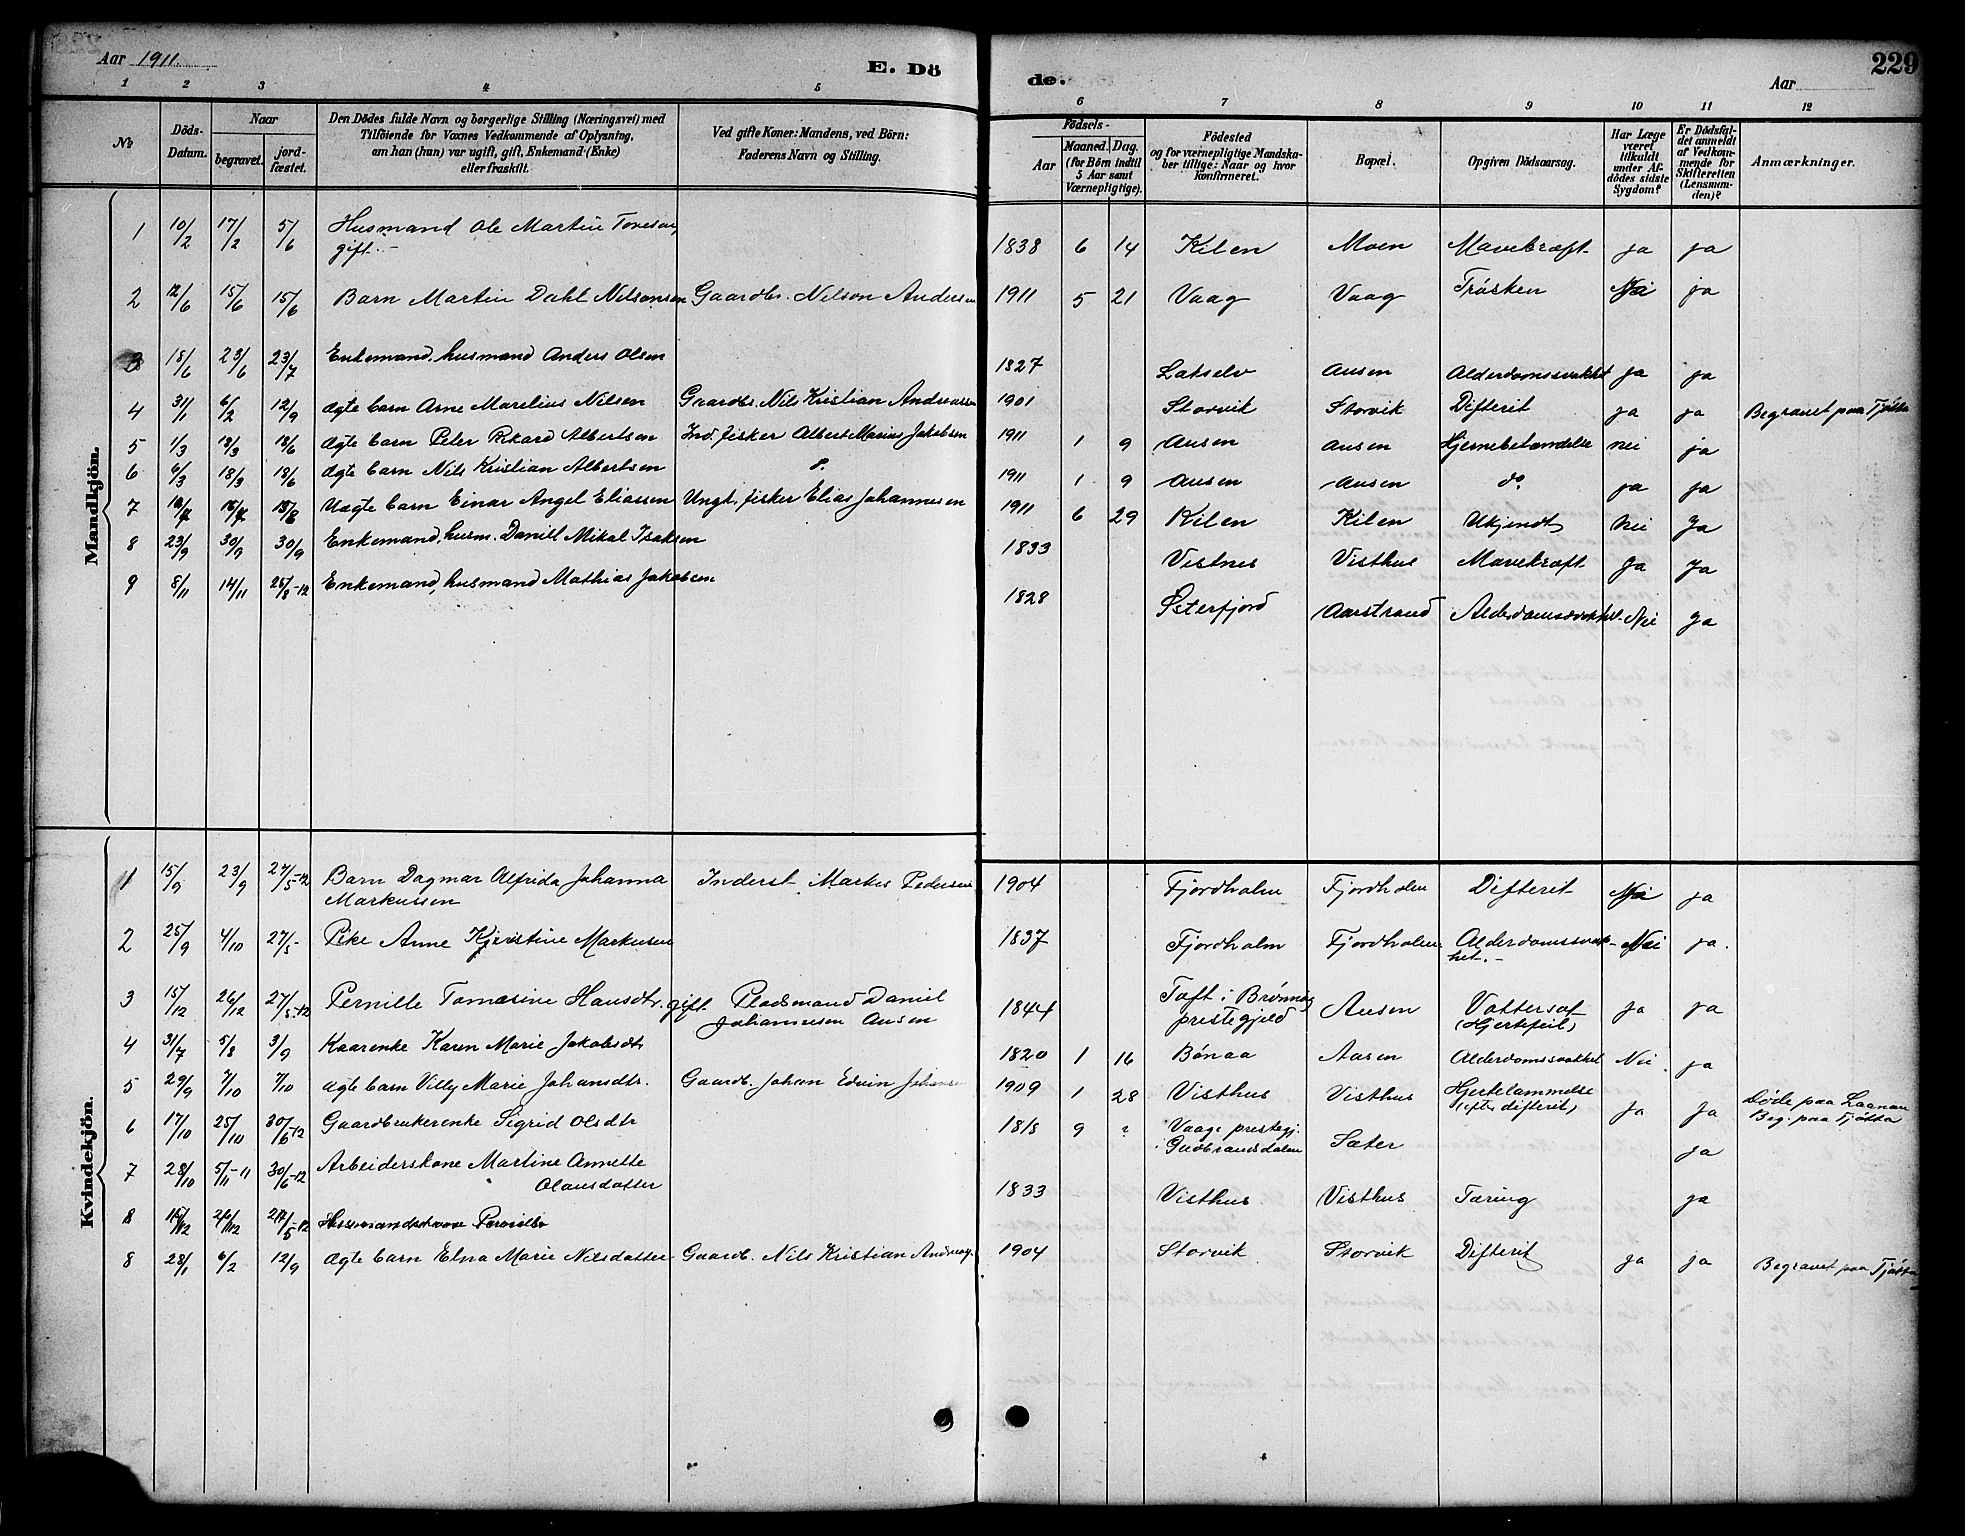 Aar 1911.
E. Dö de.
Aar
229
1 2 3 4 5 6 7 8 9 10 11 12
No
Döds-Datum.
Naar
begravet.
jordfæstet.
Den Dödes fulde Navn og borgerlige Stilling (Næringsvei) med
Tilföiende for Voxnes Vedkommende af Oplysning,
om han (hun) var ugift, gift, Enkemand (Enke)
eller fraskilt.
Ved gifte Koner: Mandens, ved Börn:
Faderens Navn og Stilling.
Födsels-
Aar
Maaned. Dag.
(for Börn indtil
5 Aar samt
Værnepligtige).
Födested
og for værnepligtige Mandskaber tillige: Naar og hvor
konfirmeret.
Bopæl.
Opgiven Dödsaarsag.
Har Læge
været
tilkaldt
under Afdödes sidste
Sygdom?
Er Dödsfaldet anmeldt
af Vedkommende for
Skifteretten
(Lensmanden)?
Anmærkninger.
Mandkjön.
1 10/2 17/2 5/6 Husmand Ole Martin Toresen, 1838 6 14 Kilen Moen Mavekræft ja ja
gift.-
2 12/6 15/6 15/6 Barn Martin Dahl Nilsonsen Gaardbr. Nilson Andersen 1911 5 21 Vaag Vaag Trøsken ja
3 18/6 23/6 23/7 Enkemand, husmand Anders Olsen 1827 Lakselv Ausen Alderdomssvakhet ja ja
4 31/1 6/2 12/9 Ægte barn Arne Marelius Nilsen Gaardbr. Nils Kristian Andreassen 1901 Storvik Storvik Difterit ja ja Begravet paa Tjøtta
5 1/3 18/3 18/6 Ægte barn Peter Rikard Albertsen Ind. fisker Albert Marius Jakobsen 1911 1 9 Ausen Ausen Hjernebetændelse nei ja
6 6/3 18/3 18/6 Ægte barn Nils Kristian Albertsen 1911 1 9 Ausen Ausen do ja ja
7 Uægte barn Einar Angel Eliassen Ungk. fisker Elias Johannesen 1911 6 29 Kilen Kilen Ukjendt Nei Ja
8 23/9 30/9 30/9 Enkemand, husm. Daniel Mikal Isaksen 1833 Vistnes Visthus Mavekræft Ja Ja
9 8/11 14/11 25/8-12 Enkemand, husmand Mathias Jakobsen 1828 Østerfjord Aarstrand Alderdomssvakhet Nei Ja
Kvindekjön.
1 15/9 23/9 27/5-12 Barn Dagmar Alfrida Johanna Inderst. Markus Pedersen 1904 Fjordholm Fjordholm Difterit ja
Markussen
2 25/9 4/10 27/5- Pike Anne Kjerstine Markusen 1837 Fjordholm Fjordholm Alderdomssvak- Nei ja.
het.-
3 15/12 26/12 27/5-12 Pernille Tomasine Hansdtr. gift Pladsmand Daniel 1844 Toft i Brønnøy Ausen Vattersot ja ja
Johannesen Ausen prestegjeld (Hjertefeil)
4 31/7 5/8 3/9 Kaarenke Karen Marie Jakobsdtr 1820 1 16 Bønaa Aasen Alderdomssvakhet Nei ja
5 29/9 7/10 7/10 Ægte barn Villy Marie Johansdtr. Gaardb. Johan Edvin Johansen 1909 1 28 Visthus Visthus Hjertelammelse ja ja Døde paa Laanan
(efter difterit) Beg. paa Tjøtta
6 17/10 25/10 30/6-12 Gaardbrukerenke Sigrid Olsdtr 1818 9 ? Vaage prestegj. Sæter ja
i Gudbrandsdalen
7 28/10 5/11-11 30/6-12 Arbeiderskone Martine Annette 1833 Visthus Visthus Tæring ja
Olausdatter
8 15/12 26/12 27/5-12 Husmandskone Pernille
8 28/1 6/2 12/9 Ægte barn Elna Marie Nilsdatter Gaardb. Nils Kristian Andreas. 1904 Storvik Storvik Difterit ja ja Begravet paa Tjøtta